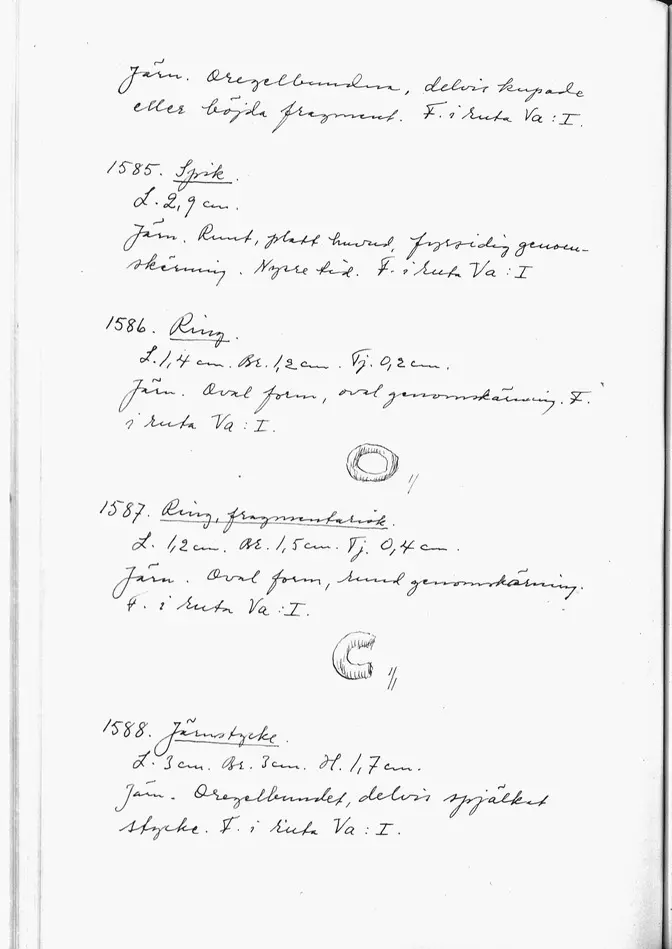 Järn. Oregelbundna, delvis kupade
eller böjda fragment. F. i ruta Va : I.
1585. Spik.
L. 2,9 cm.
Järn. Runt, platt huvud, fyrsidig genom-
skärning. Nyare tid. F. i ruta Va : I
1586. Ring.
L. 1,4 cm. Br. 1,2 cm. Tj. 0,2 cm.
Järn. Oval form, oval genomskärning. F.
i ruta Va : I.
1/
1587. Ring, fragmentarisk.
L. 1,2 cm. Br. 1,5 cm. Tj. 0,4 cm.
Järn. Oval form, rund genomskärning.
F. i ruta Va : I.
1/1
1588. Järnstycke.
L. 3 cm. Br. 3 cm. H. 1,7 cm.
Järn. Oregelbundet, delvis spjälkat
stycke. F. i ruta Va : I.